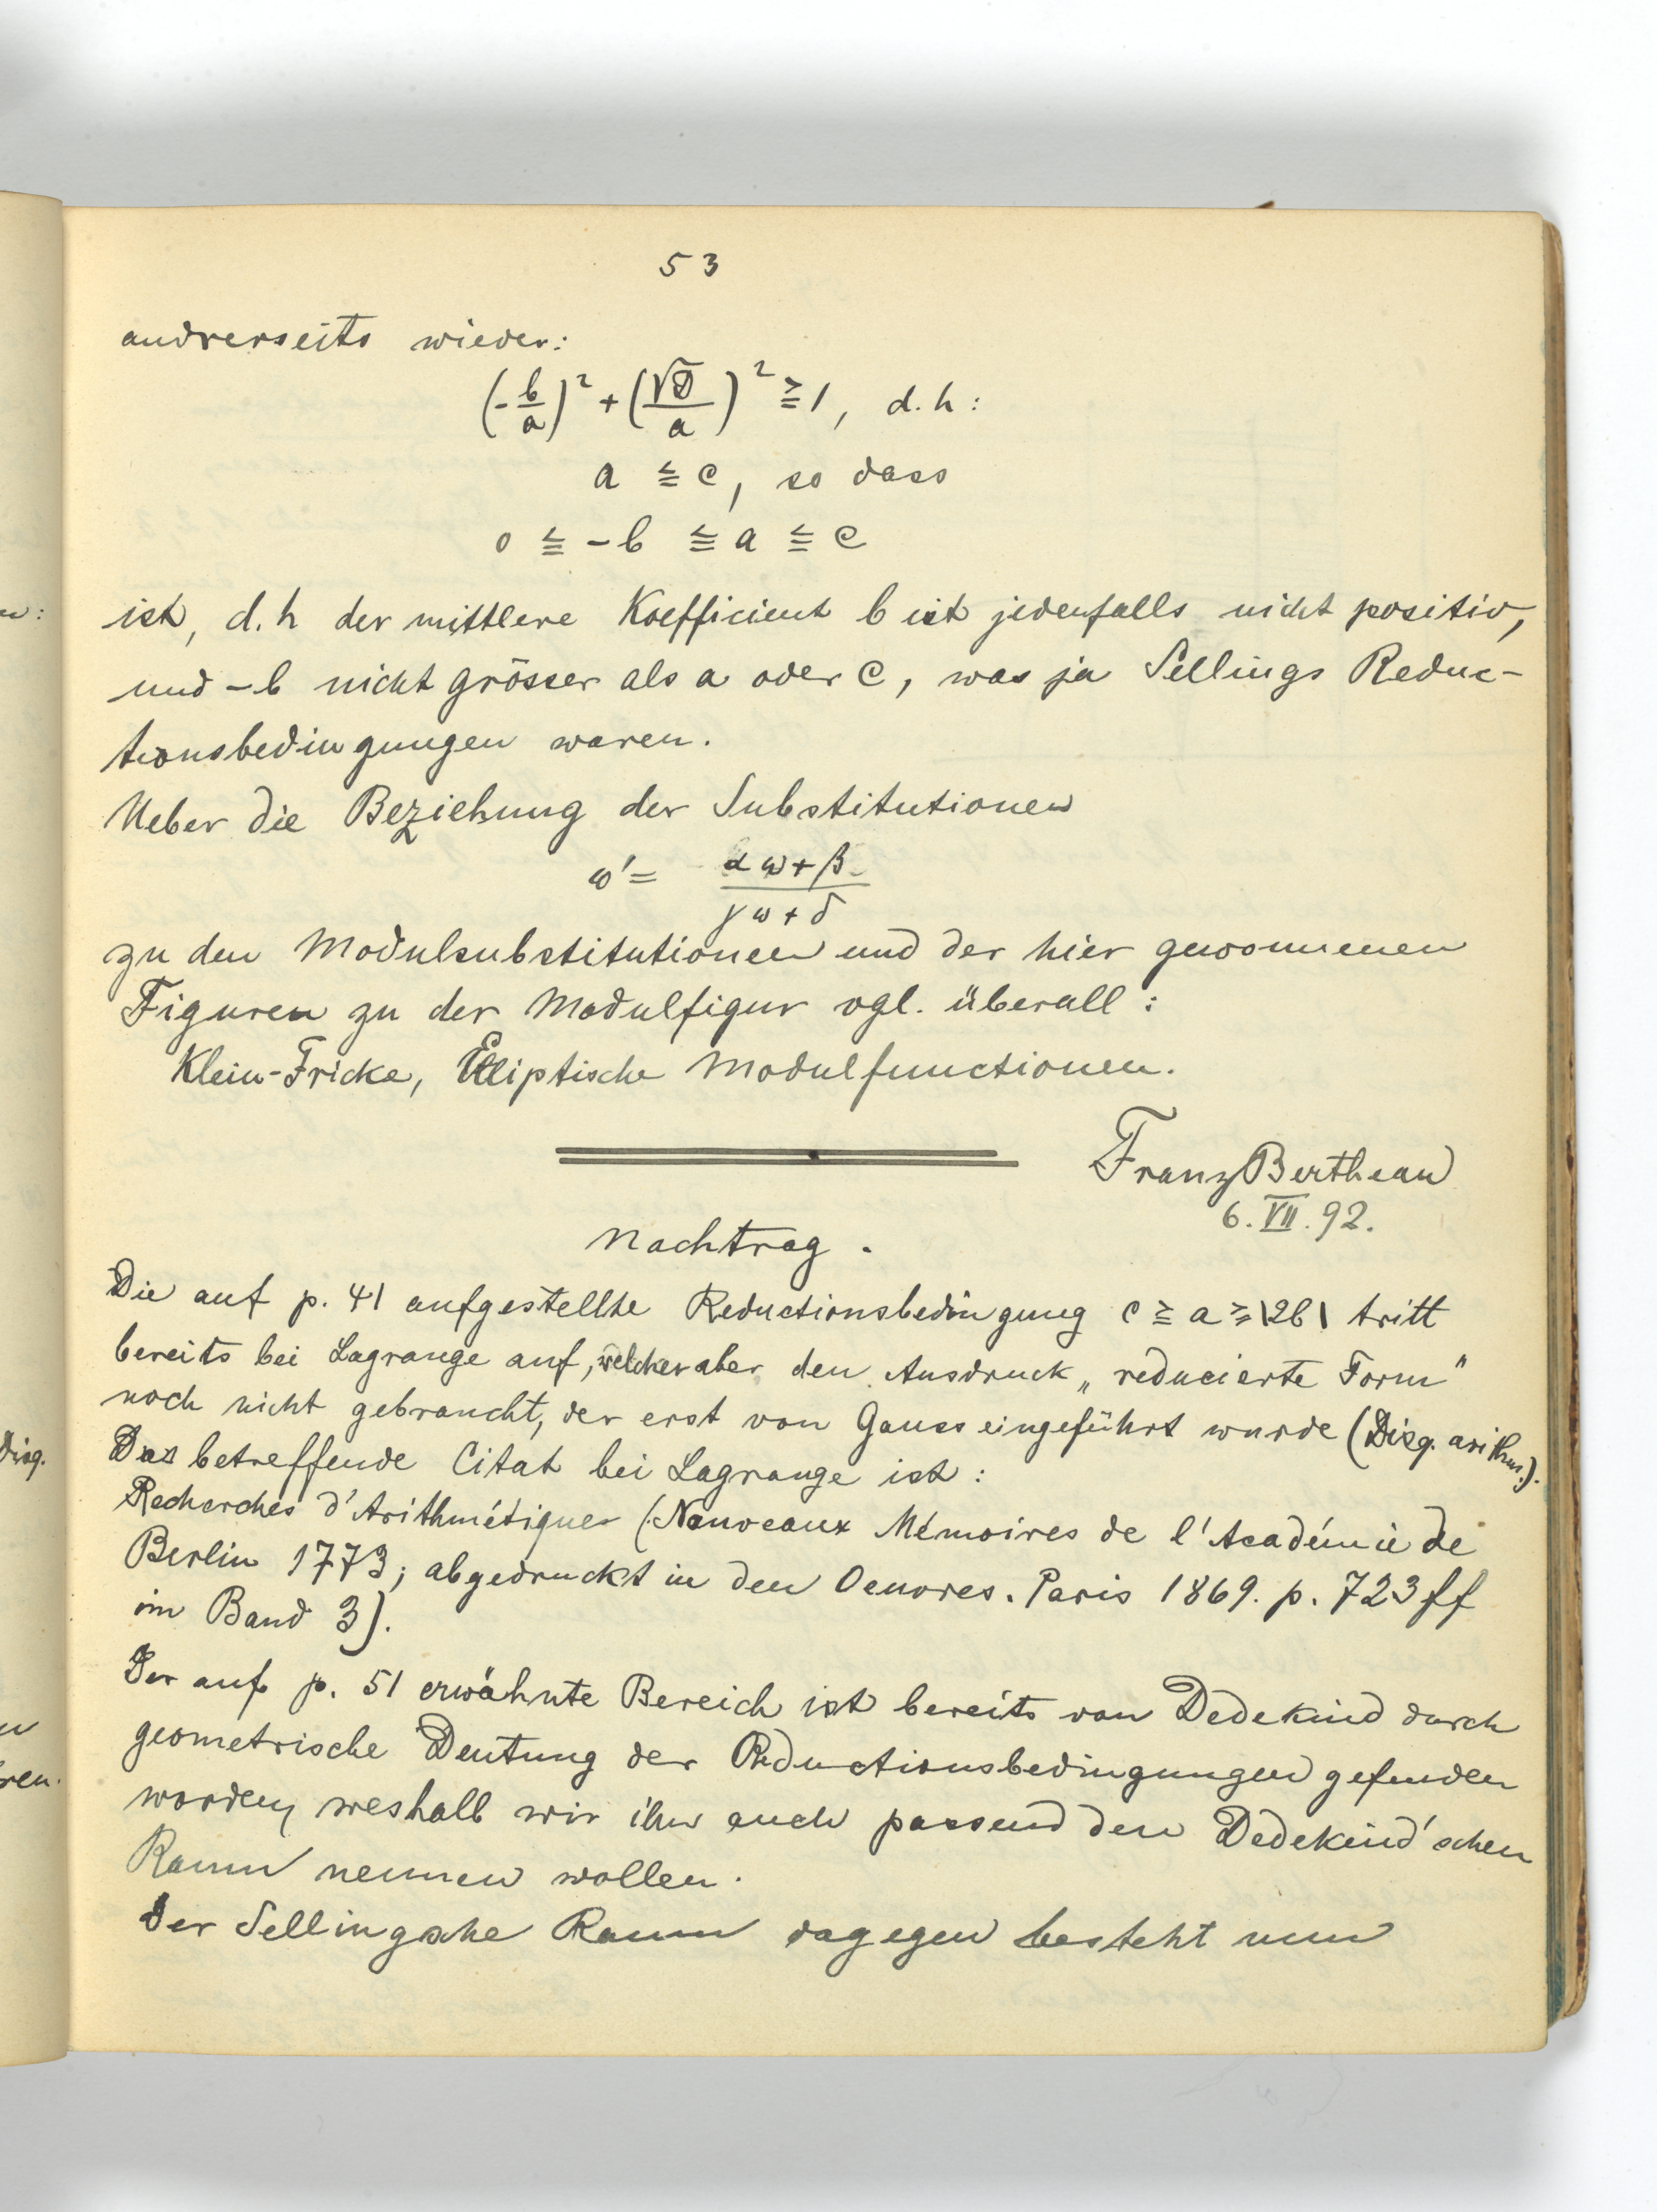 53
andrerseits wieder:
(-b/a)² + (√D/a)² ≧ 1, d.h:
a ≦ c, so dass
0 ≦ -b ≦ a ≦ c
ist, d.h der mittlere Koefficient b ist jedenfalls nicht positiv,
und -b nicht grösser als a oder c, was ja Sellings Reduc-
tionsbedingungen waren.
Ueber die Beziehung der Substitutionen
ω' = (αω+β)/(γω+δ)
zu den Modulsubstitutionen und der hier gewonnenen
Figuren zu der Modulfigur vgl. überall:
Klein-Fricke, Elliptische Modulfunctionen.
Franz Bertheau
6. VII. 92.
Nachtrag.
Die auf p. 41 aufgestellte Reductionsbedingung c ≧ a ≧ |2b| tritt
bereits bei Lagrange auf, welcher aber den Ausdruck „reducierte Form"
noch nicht gebraucht, der erst von Gauss eingeführt wurde (Disq. arithm.).
Das betreffende Citat bei Lagrange ist:
Recherches d'Arithmétique (Nouveaux Mémoires de l'Académie de
Berlin 1773; abgedruckt in den Oeuvres. Paris 1869. p. 723 ff
im Band 3).
Der auf p. 51 erwähnte Bereich ist bereits von Dedekind durch
geometrische Deutung der Reductionsbedingungen gefunden
worden, weshalb wir ihn auch passend den Dedekind'schen
Raum nennen wollen.
Der Sellingsche Raum dagegen besteht nun
w:
Disq.
ren.